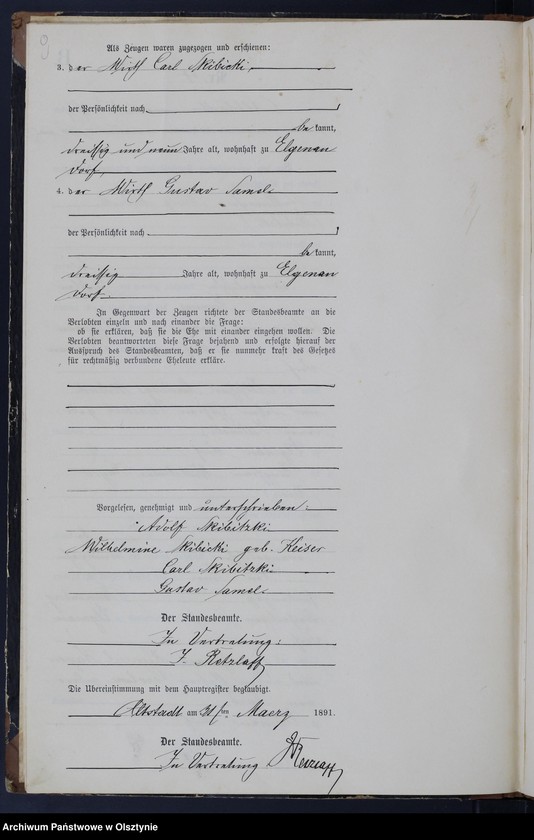 9
Als Zeugen waren zugezogen und erschienen:
3. der Wirth Carl Skibicki,
der Persönlichkeit nach
be kannt,
dreißig und neun Jahre alt, wohnhaft zu Elgenau
Dorf,
4. der Wirth Gustav Samel
der Persönlichkeit nach
be kannt,
dreissig Jahre alt, wohnhaft zu Elgenau
Dorf
In Gegenwart der Zeugen richtete der Standesbeamte an die
Verlobten einzeln und nach einander die Frage:
ob sie erklären, daß sie die Ehe mit einander eingehen wollen. Die
Verlobten beantworteten diese Frage bejahend und erfolgte hierauf der
Ausspruch des Standesbeamten, daß er sie nunmehr kraft des Gesetzes
für rechtmäßig verbundene Eheleute erkläre.
Vorgelesen, genehmigt und unterschrieben:
Adolf Skibitzki
Wilhelmine Skibicki geb. Keiser
Carl Skibitzki
Gustav Samel
Der Standesbeamte.
In Vertretung:
F. Retzlaff
Die Übereinstimmung mit dem Hauptregister beglaubigt.
Altstadt am 31 ten Maerz 1891.
Der Standesbeamte.
In Vertretung Retzlaff
Archiwum Państwowe w Olsztynie